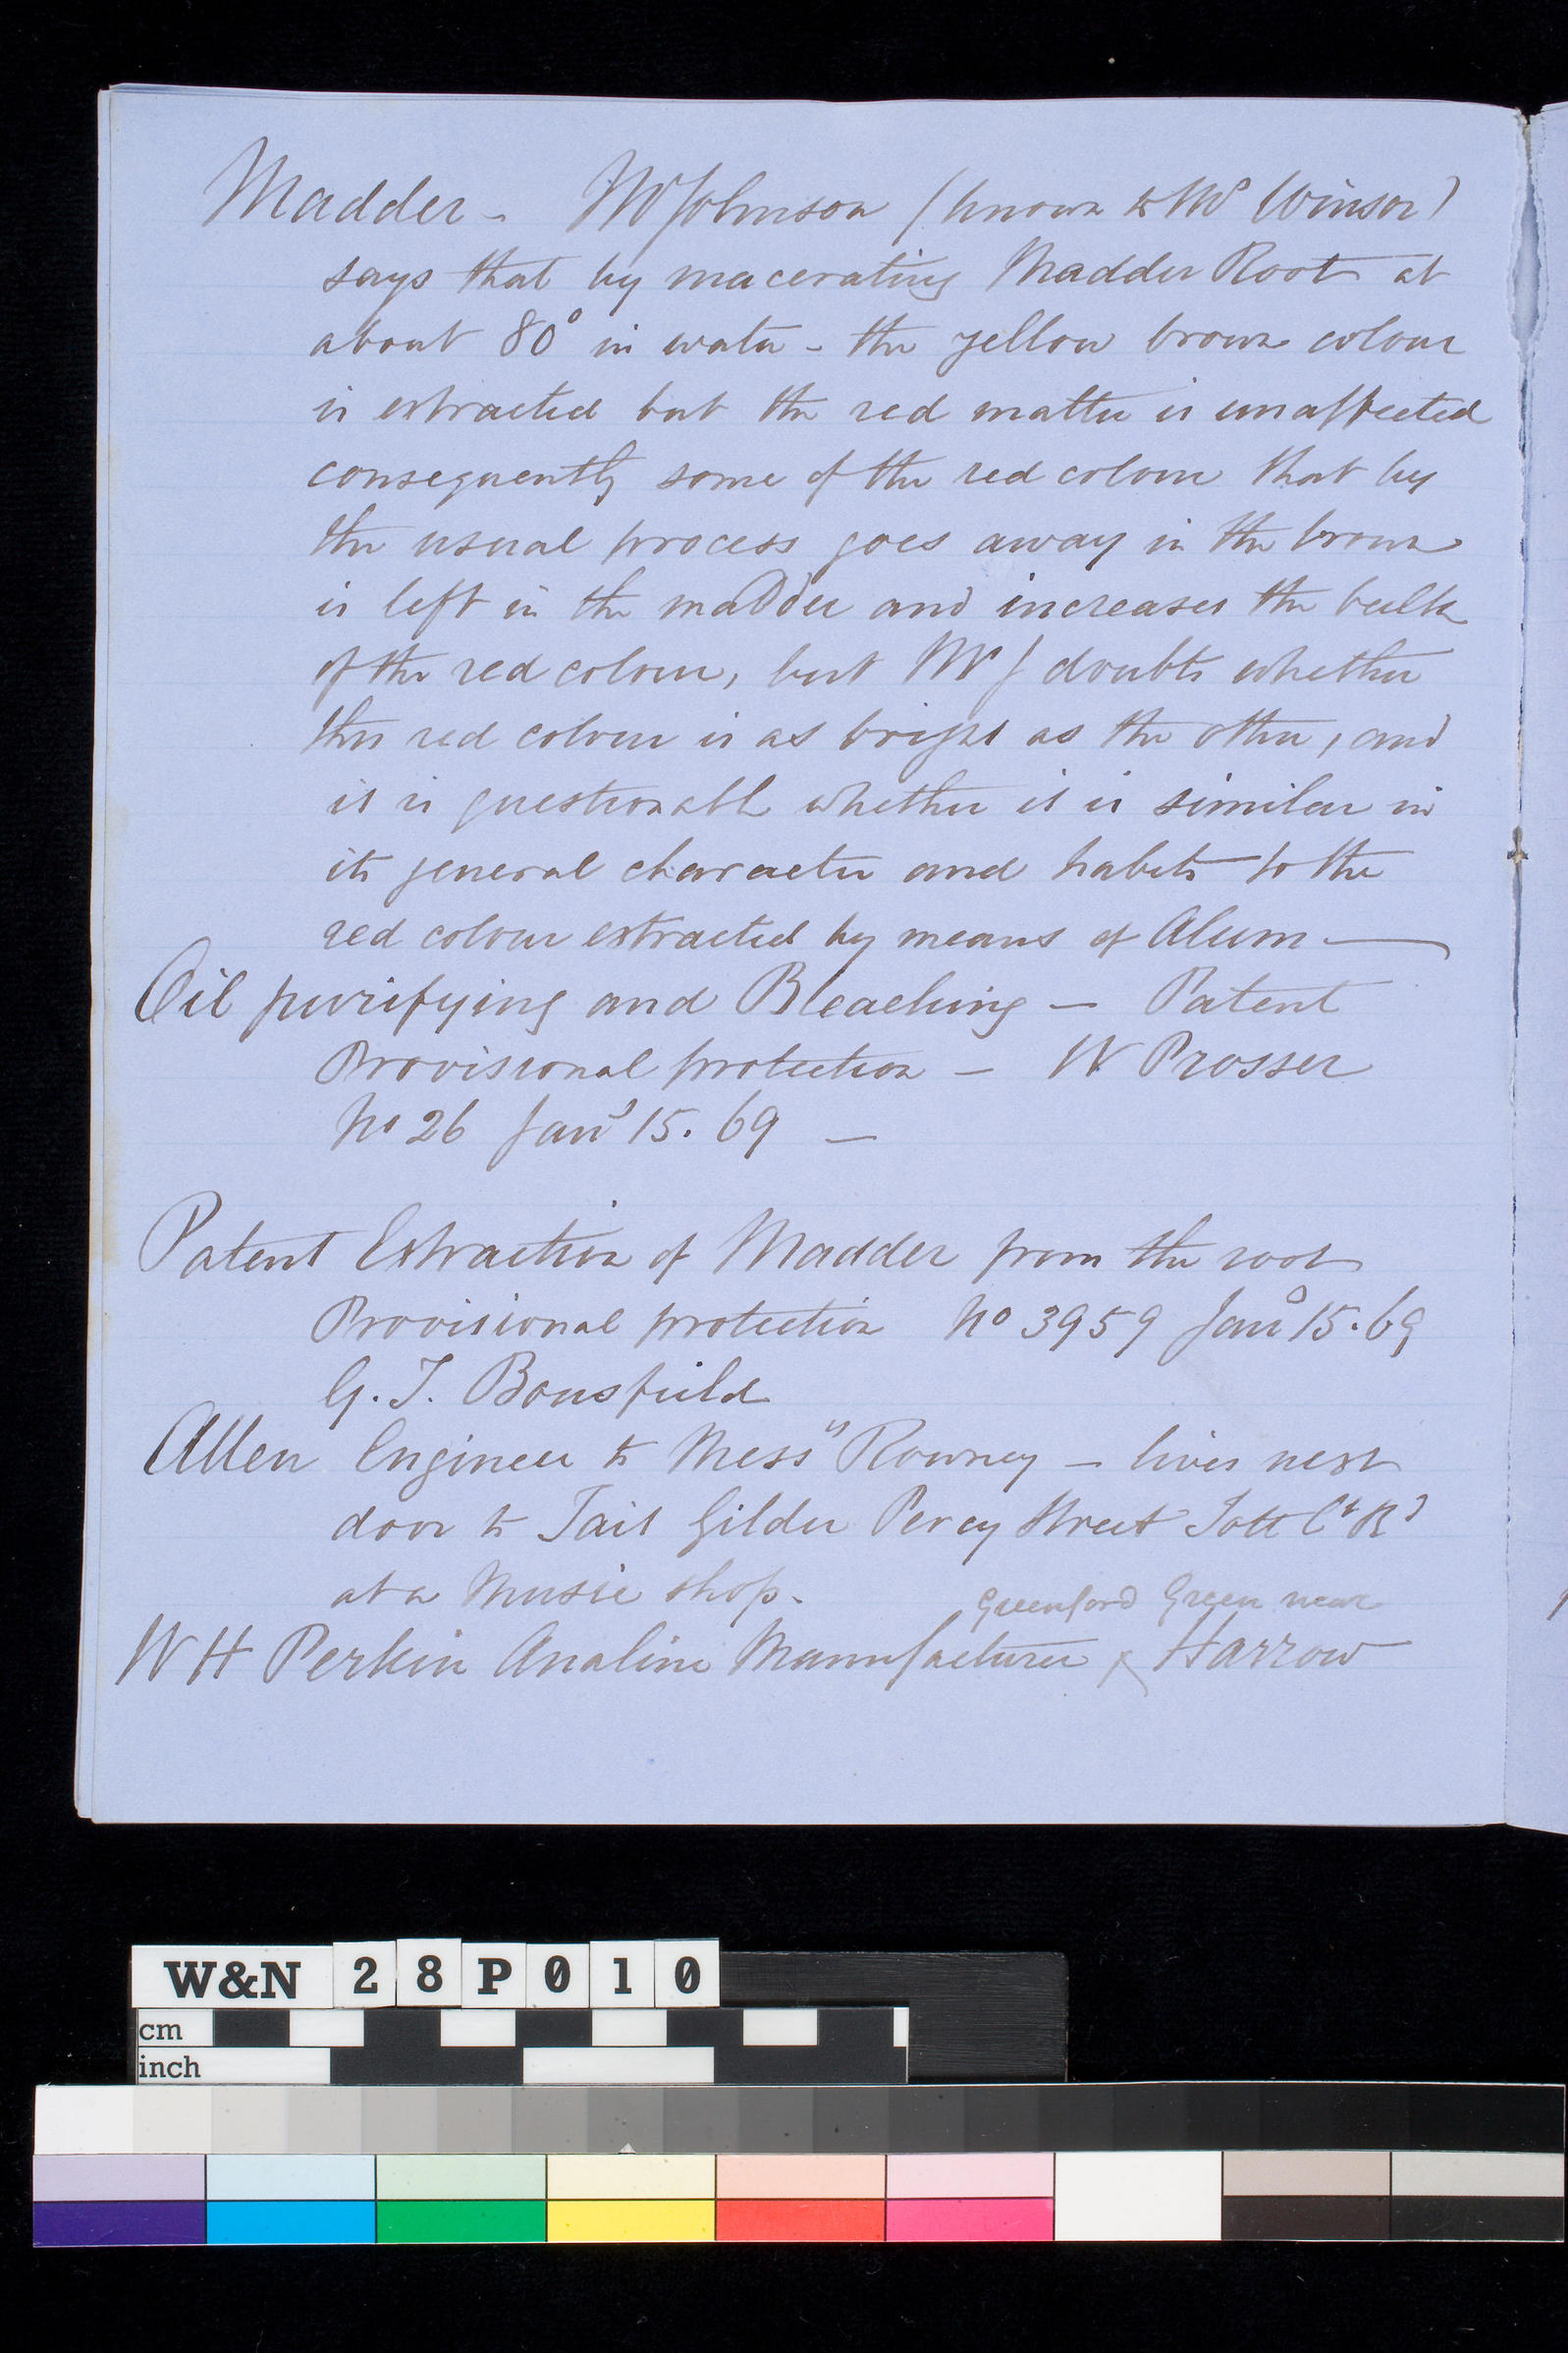 Madder - Mr Johnson (known to Mr Winsor)
says that by macerating Madder Root at
about 80° in water - the yellow brown colour
is extracted but the red matter is unaffected
consequently some of the red colour that by
the usual process goes away in the brown
is left in the madder and increases the bulk
of the red colour, but Mr J doubts whether
this red colour is as bright as the other, and
it is questionable whether it is similar in
its general character and habits to the
red colour extracted by means of Alum —
Oil purifying and Bleaching — Patent
Provisional protection — W Prosser
No 26 Jany 15. 69 —
Patent Extraction of Madder from the root
Provisional protection No 3959 Jany 15. 69
G. T. Bousfield
Allen Engineer to Messrs Rowney — lives next
door to Tait Gilder Percy Street Tott Ct Rd
at a Music shop.
Greenford Green near
W H Perkin Analine Manufacturer Harrow
W&N 28P010
cm
inch